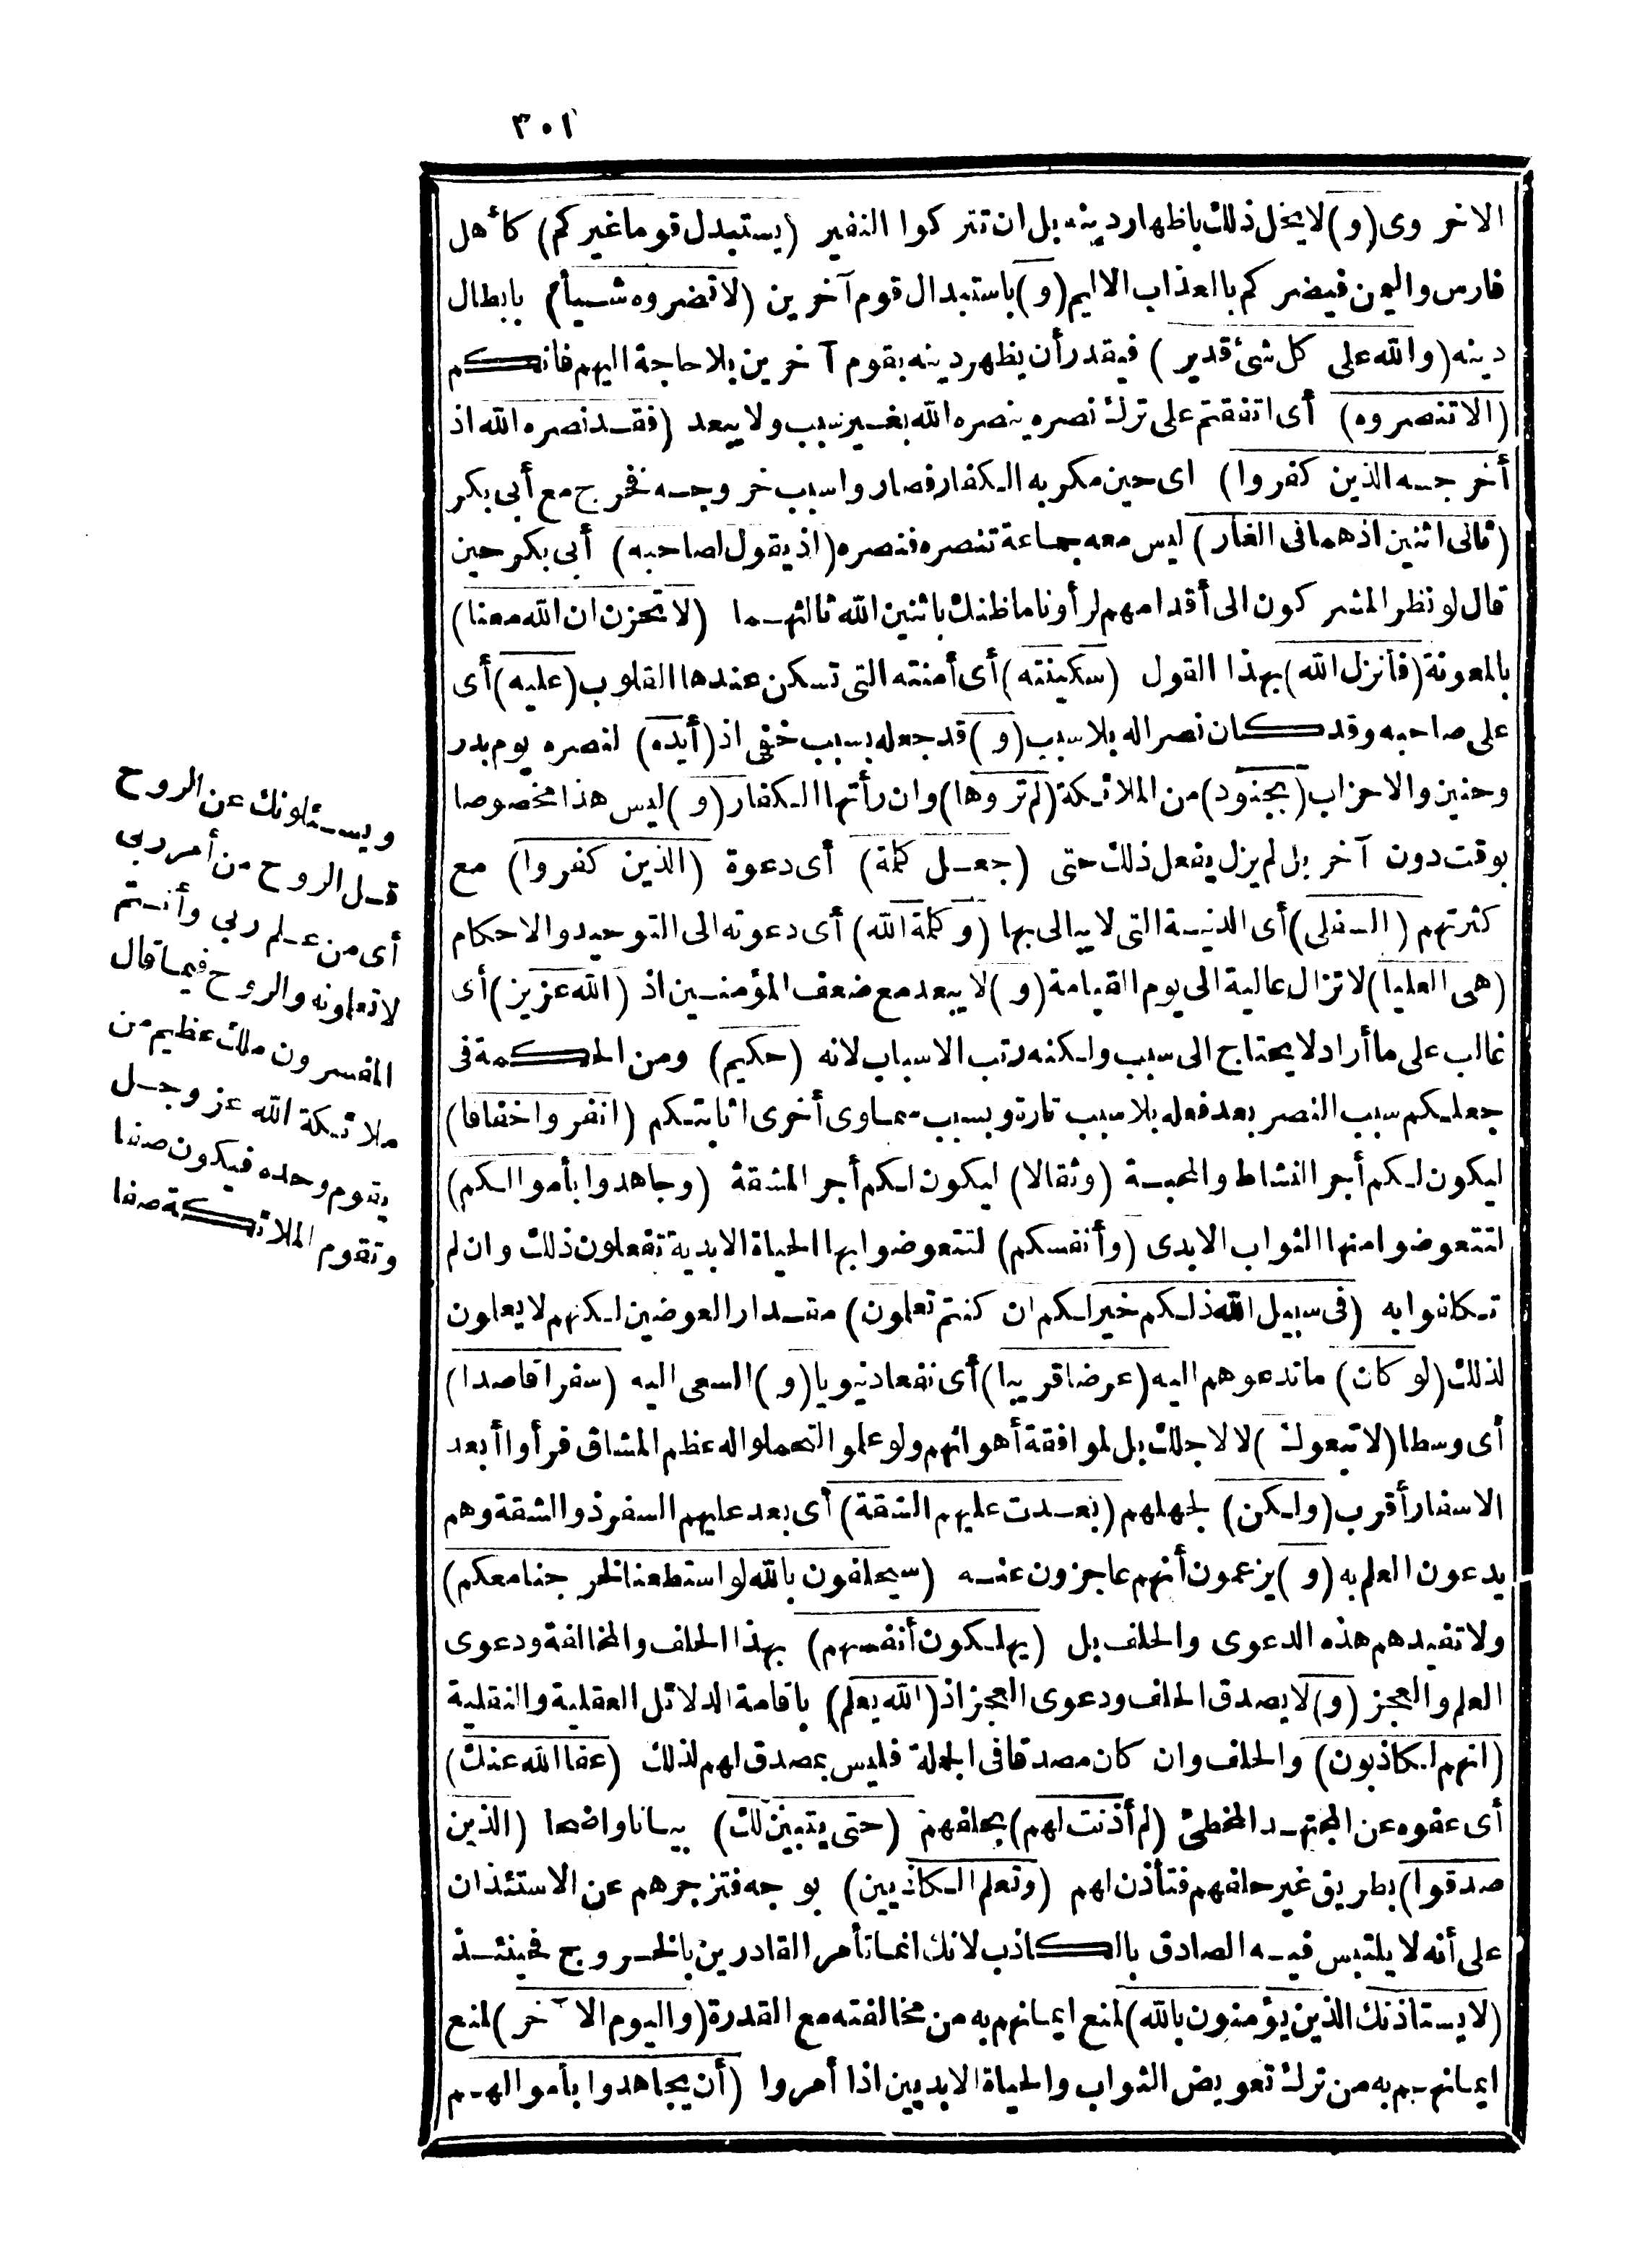 ٣٠١
الاخروى (و) لا يخل ذلك باظهار دينه بل ان تتركوا النفير (يستبدل قوما غيركم) كأهل
فارس واليمن فيضركم بالعذاب الاليم (و) باستبدال قوم آخرين (لا تضروه شيأ) بابطال
دينه (والله على كل شئ قدير) فيقدر أن يظهر دينه بقوم آخرين بلا حاجة اليهم فانكم
(الا تنصروه) أى اتفقتم على ترك نصره ينصره الله بغير سبب ولا يبعد (فقد نصره الله اذ
أخرجه الذين كفروا) اى حين مكر به الكفار فصاروا سبب خروجه فخرج مع أبى بكر
(ثانى اثنين اذ هما فى الغار) ليس معه جماعة تنصره فنصره (اذ يقول لصاحبه) أبى بكر حين
قال لو نظر المشركون الى أقدامهم لرأونا ما ظنك باثنين الله ثالثهما (لا تحزن ان الله معنا)
بالمعونة (فأنزل الله) بهذا القول (سكينته) أى أمنته التى تسكن عندها القلوب (عليه) أى
على صاحبه وقد كان نصرا له بلا سبب (و) قد جعله بسبب خفى اذ (أيده) لنصره يوم بدر
وحنين والاحزاب (بجنود) من الملائكة (لم تروها) وان رأتها الكفار (و) ليس هذا مخصوصا
بوقت دون آخر بل لم يزل يفعل ذلك حتى (جعل كلمة) أى دعوة (الذين كفروا) مع
كثرتهم (السفلى) أى الدنية التى لا يبالى بها (وكلمة الله) أى دعوته الى التوحيد والاحكام
(هى العليا) لا تزال عالية الى يوم القيامة (و) لا يبعد مع ضعف المؤمنين اذ (الله عزيز) أى
غالب على ما أراد لا يحتاج الى سبب ولكنه رتب الاسباب لانه (حكيم) ومن الحكمة فى
جعلكم سبب النصر بعد فعله بلا سبب تارة وبسبب سماوى أخرى اثابتكم (انفروا خفافا)
ليكون لكم أجر النشاط والمحبة (وثقالا) ليكون لكم أجر المشقة (وجاهدوا بأموالكم)
لتتعوضوا منها الثواب الابدى (وأنفسكم) لتتعوضوا بها الحياة الابدية تفعلون ذلك وان لم
تكافوا به (فى سبيل الله ذلكم خير لكم ان كنتم تعلمون) مقدار العوضين لكنهم لا يعلمون
لذلك (لو كان) ما تدعوهم اليه (عرضا قريبا) أى نفعا دنيويا (و) السعى اليه (سفرا قاصدا)
أى وسطا (لا تبعوك) لا لاجلك بل لموافقة أهوائهم ولو علموا لتحملوا له عظم المشاق فرأوا أبعد
الاسفار أقرب (ولكن) لجهلهم (بعدت عليهم الشقة) أى بعد عليهم السفر ذو الشقة وهم
يدعون العلم به (و) يزعمون أنهم عاجزون عنه (سيحلفون بالله لو استطعنا لخرجنا معكم)
ولا تفيدهم هذه الدعوى والحلف بل (يهلكون أنفسهم) بهذا الحلف والمخالفة ودعوى
العلم والعجز (و) لا يصدق الحلف ودعوى العجز اذ (الله يعلم) باقامة الدلائل العقلية والنقلية
(انهم لكاذبون) والحلف وان كان مصدقا فى الجملة فليس بمصدق لهم لذلك (عفا الله عنك)
أى عفوه عن المجتهد المخطئ (لم أذنت لهم) بحلفهم (حتى يتبين لك) بيانا واضحا (الذين
صدقوا) بطريق غير حلفهم فتأذن لهم (وتعلم الكاذبين) بوجه فتزجرهم عن الاستئذان
على أنه لا يلتبس فيه الصادق بالكاذب لانك انما تأمر القادرين بالخروج فحينئذ
(لا يستأذنك الذين يؤمنون بالله) لمنع ايمانهم به من مخالفته مع القدرة (واليوم الآخر) لمنع
ايمانهم به من ترك تعويض الثواب والحياة الابديين اذا أمروا (أن يجاهدوا بأموالهم
ويسئلونك عن الروح
قل الروح من أمر ربى
أى من علم ربى وأنتم
لا تعلونه والروح فيما قال
المفسرون ملك عظيم من
ملائكة الله عز وجل
يقوم وحده فيكون صفا
وتقوم الملائكة صفا